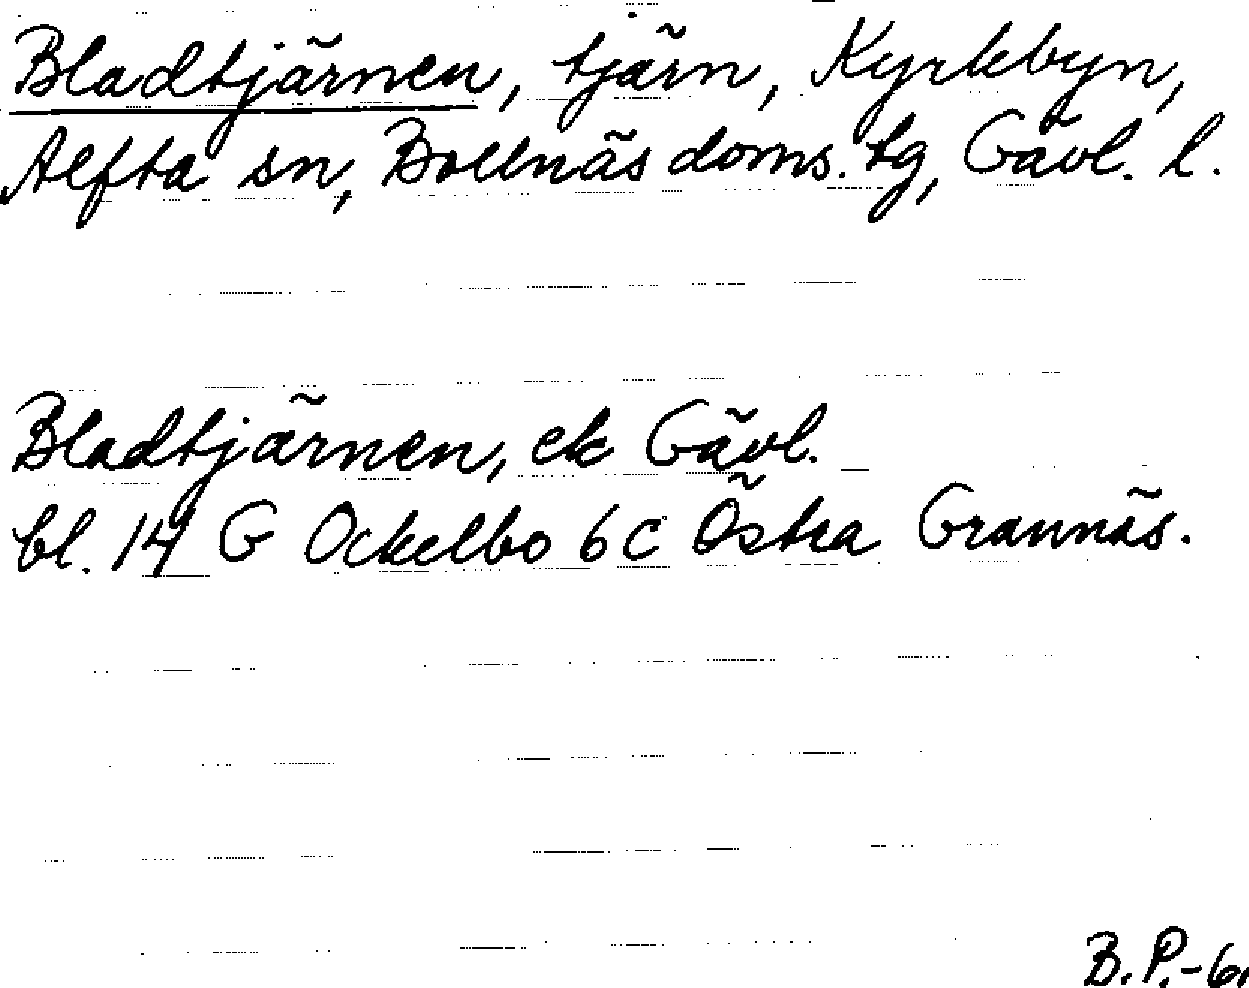 Bladtjärnen, tjärn, Kyrkbyn,
Alfta sn, Bollnäs doms. tg, Gävl. l.
Bladtjärnen, ek Gävl.
bl. 14 G Ockelbo 6 c Östra Grannäs.
B.P.-6